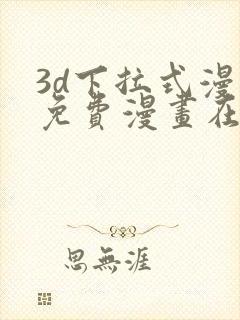 3d下拉式漫
免費漫畫在
思無涯